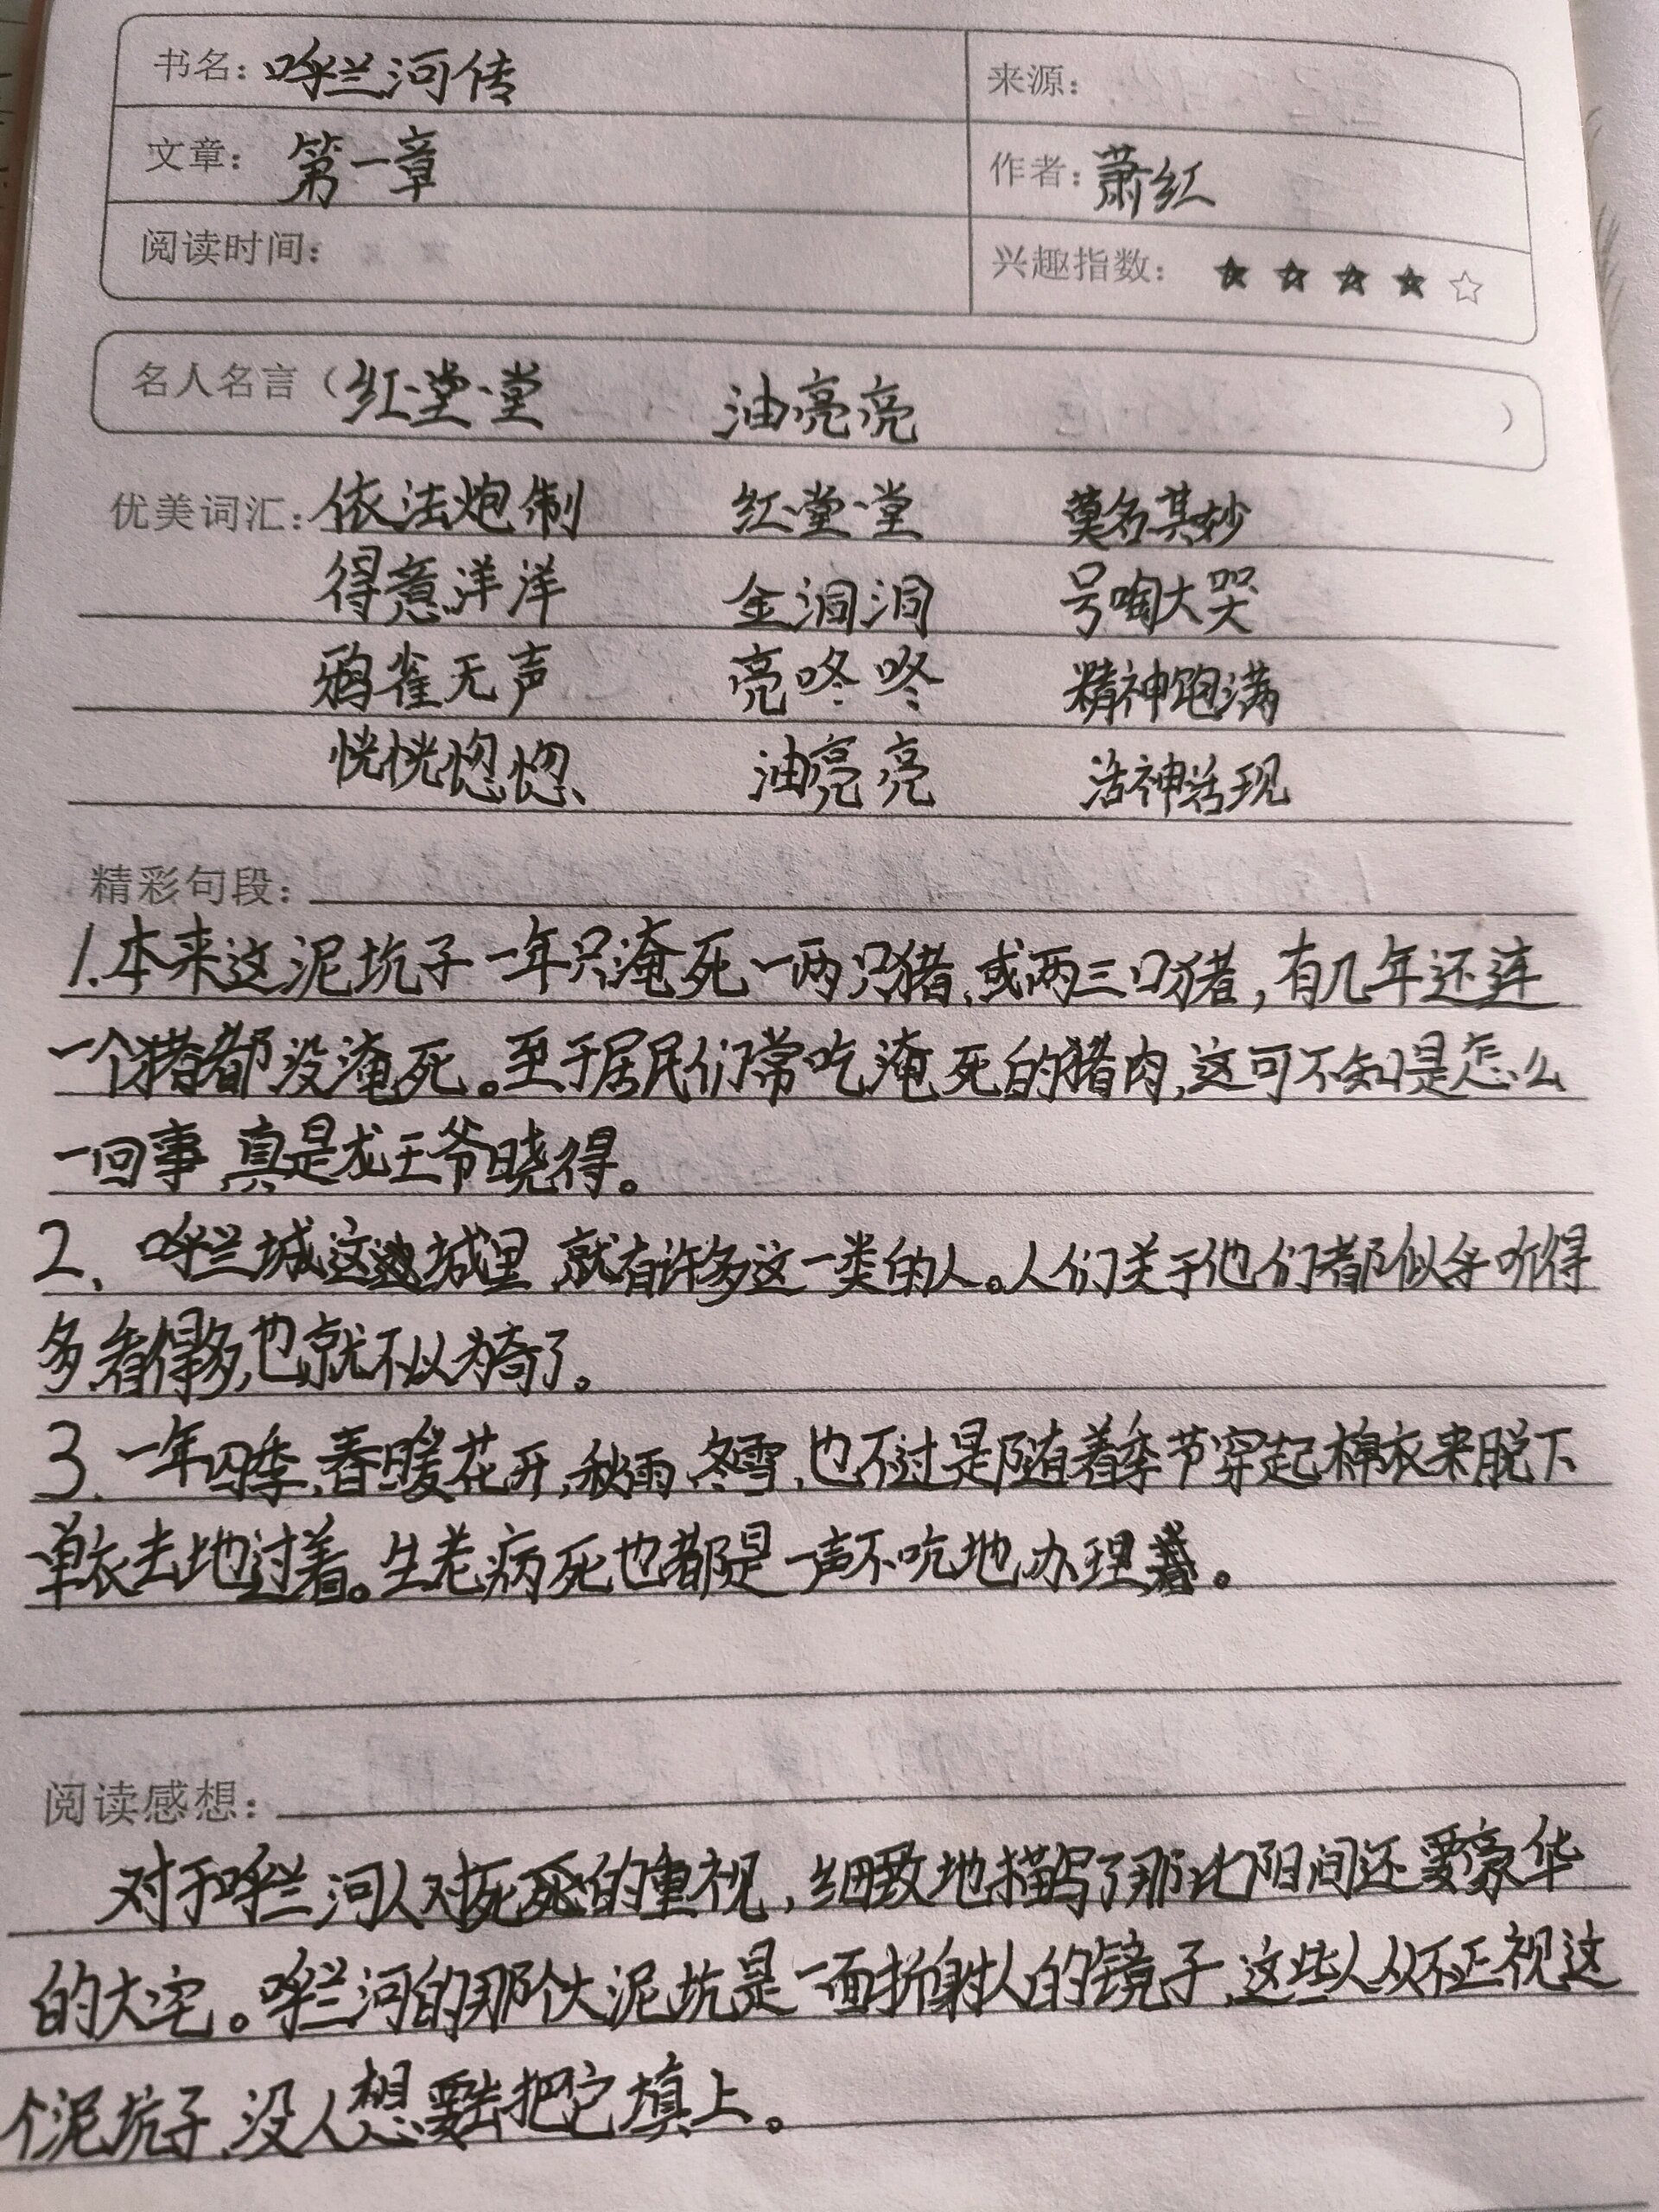 书名：呼兰河传 来源：
文章：第一章 作者：萧红
阅读时间： 兴趣指数：★★★★☆
名人名言（红堂堂 油亮亮 ）
优美词汇：依法炮制 红堂堂 莫名其妙
得意洋洋 金洞洞 号啕大哭
鸦雀无声 亮咚咚 精神饱满
恍恍惚惚、 油亮亮 活神活现
精彩句段：
1.本来这泥坑子一年只淹死一两只猪，或两三口猪，有几年还连
一个猪都没淹死。至于居民们常吃淹死的猪肉，这可不知是怎么
一回事，真是龙王爷晓得。
2、呼兰城这边城里，就有许多这一类的人。人们关于他们都似乎听得
多，看得多，也就不以为奇了。
3.一年四季，春暖花开，秋雨，冬雪，也不过是随着季节穿起棉衣来脱下
单衣去地过着。生老病死也都是一声不吭地办理着。
阅读感想：
对于呼兰河人对死的重视，细致地描写了那比阳间还要豪华
的大宅。呼兰河的那个大泥坑是一面折射人的镜子，这些人从不正视这
个泥坑子，没人想要去把它填上。